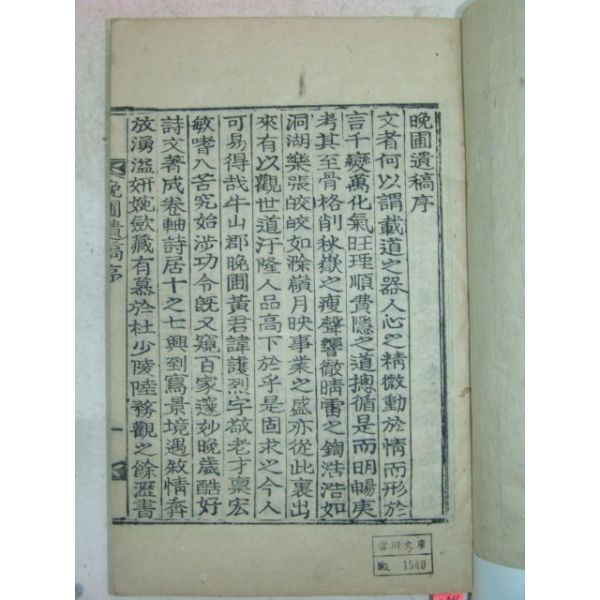 晩圃遺稿序
文者何以謂載道之器人心之精微動於情而形於
言千變萬化氣旺理順費隱之道摠循是而明暢夷
考其至骨格削秋嶽之瘦聲響徹晴雷之鍧浩浩如
洞湖樂張皎皎如滁嶺月映事業之盛亦從此裏出
來有以觀世道汙隆人品高下於乎是固求之今人
可易得哉牛山郡晩圃黃君諱護烈字敬老才稟宏
敏嗜八苦究始涉功令旣又窺百家邃妙晩歲酷好
詩文著成卷軸詩居十之七興到寫景境遇敘情奔
放湧溢姸婉歛藏有慕於杜少陵陸務觀之餘瀝書
晩圃遺稿序
一
雷川文庫
No. 1540